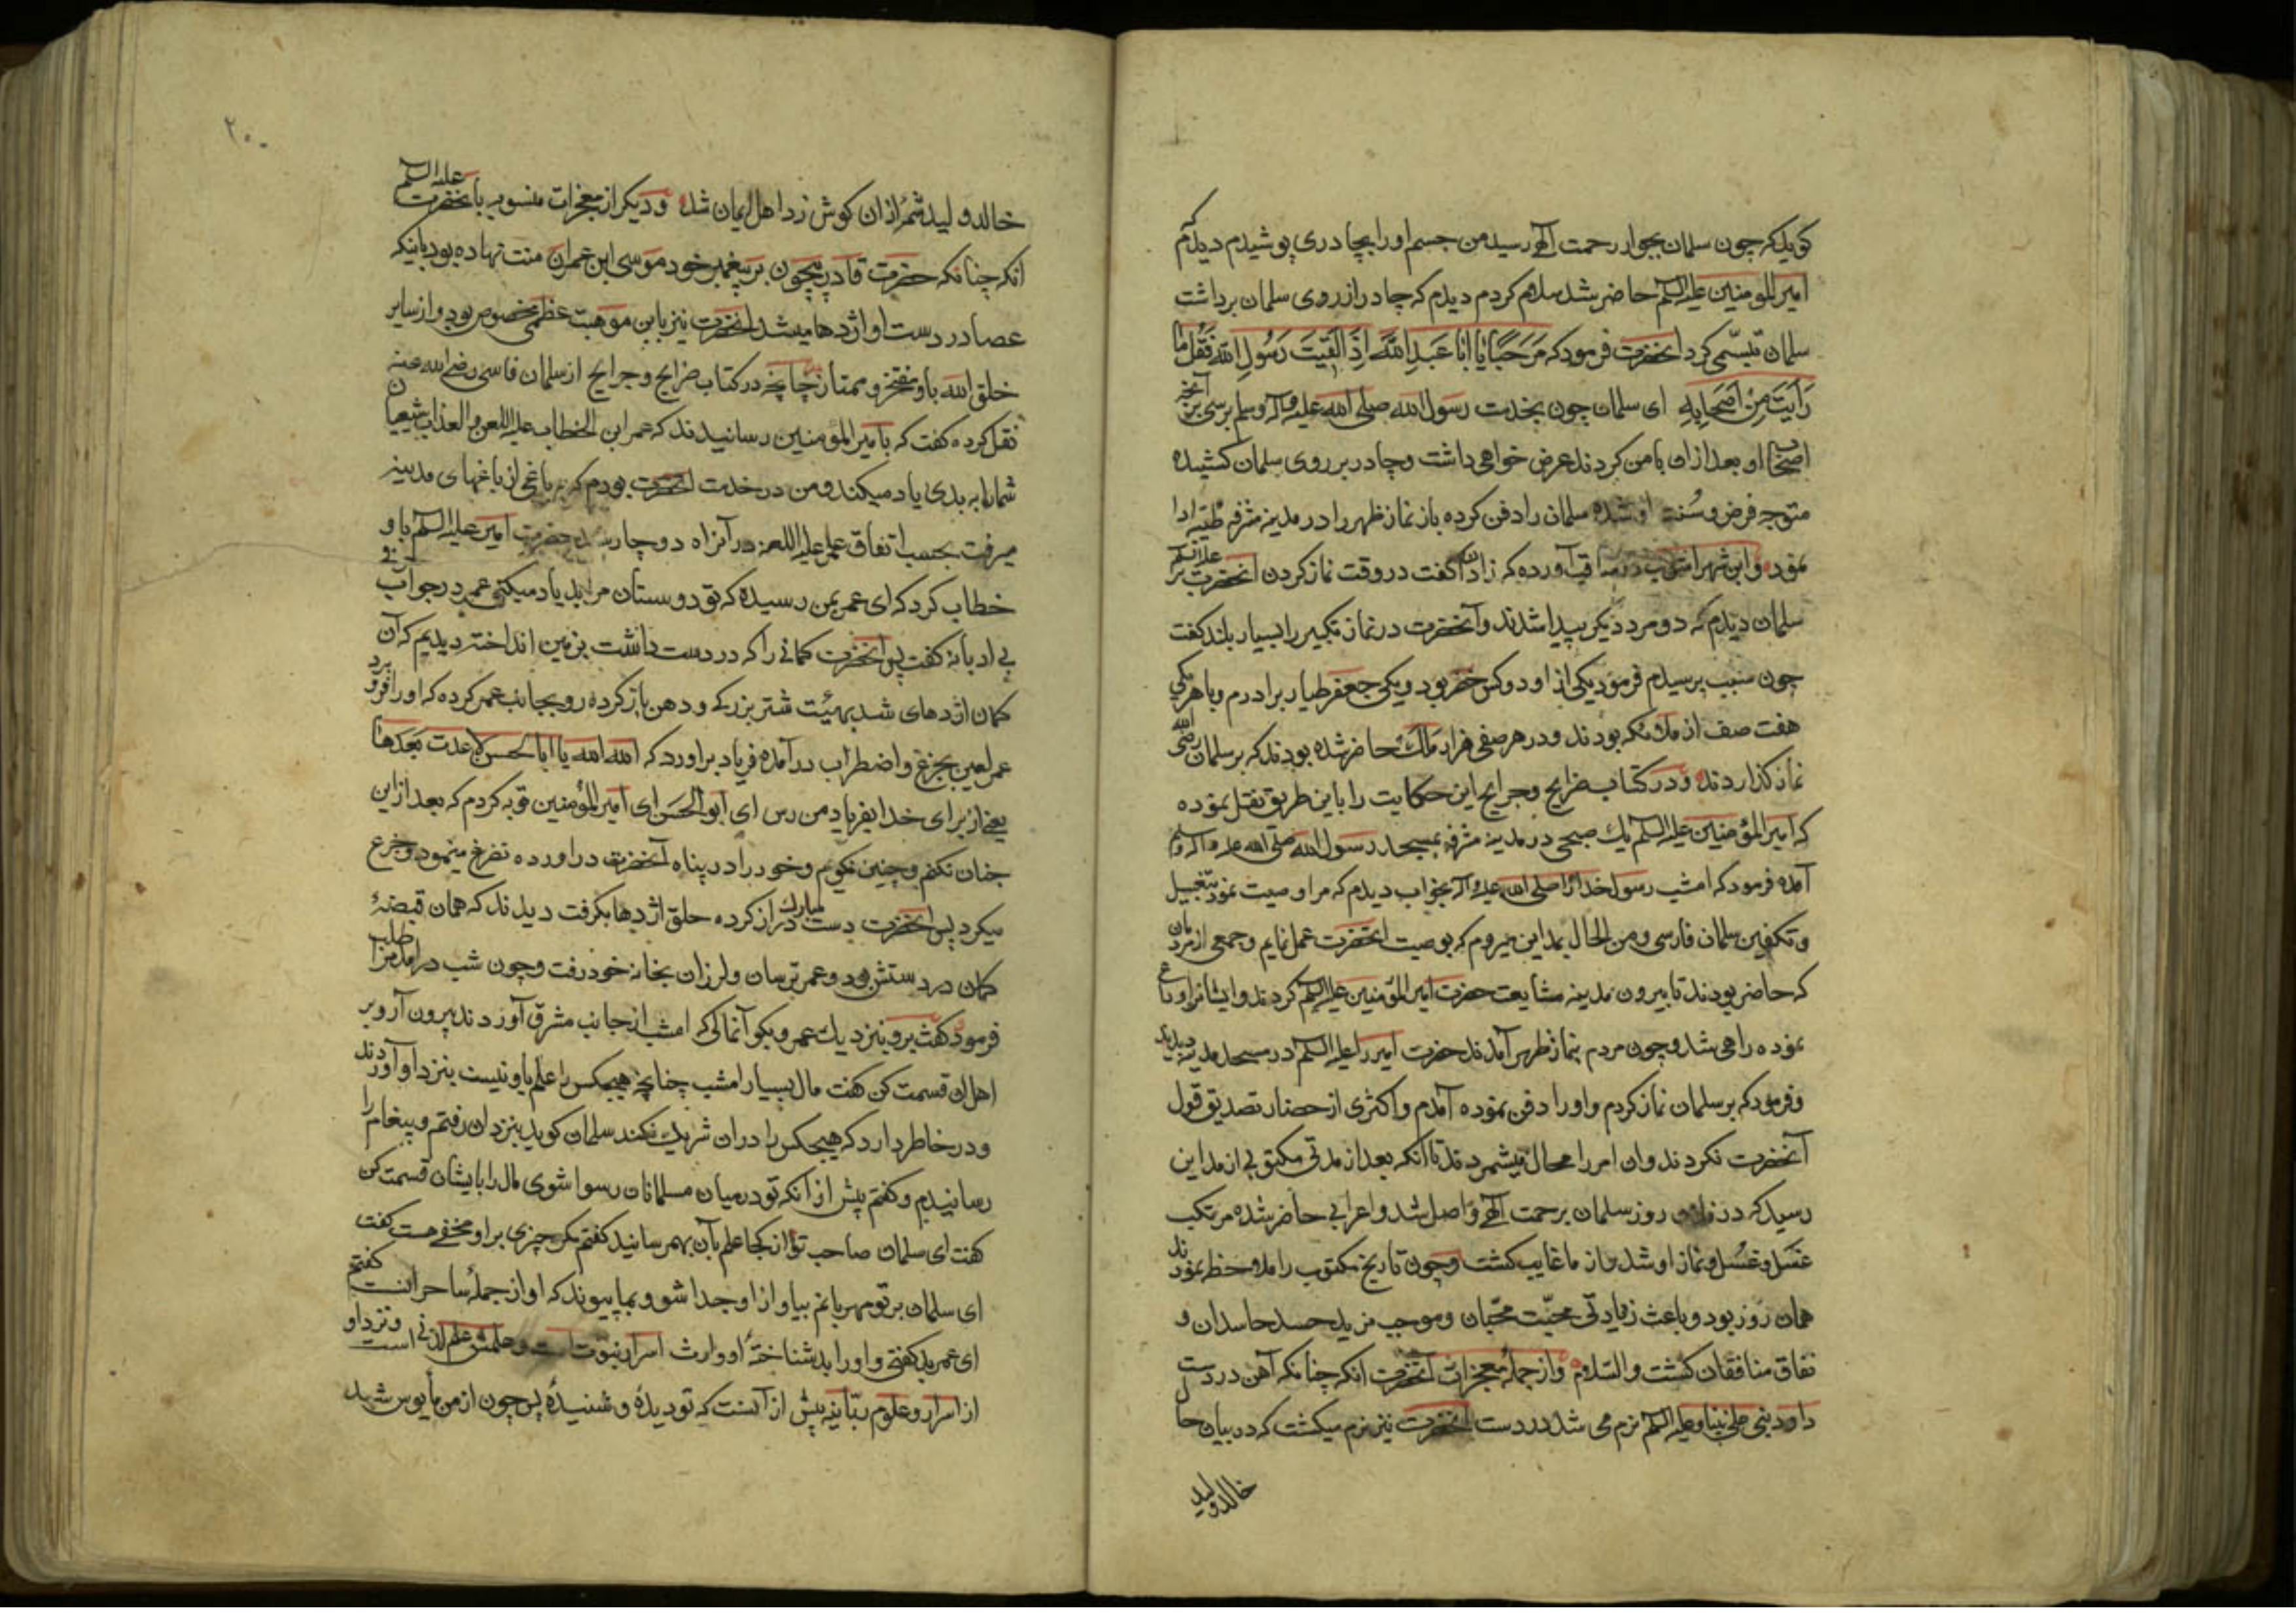 کوید که چون سلمان بجوار رحمت آلهی رسید من جسم او را بچادری پوشیدم دیدم که
امیر المومنین علیه السلم حاضر شد سلام کردم دیدم که چادر از روی سلمان برداشت
سلمان تبسمی کرد انحضرت فرمود که مَرحَبًا یا ابا عَبدِ اللهِ اِذَ القَیتَ رَسُولَ اللهِ فَقُل ما
رَاَیتَ مِن اَصحابِهِ ای سلمان چون بخدمت رسول الله صلی الله علیه وآله وسلم برسی آنچه
اصحاب او بعد از او با من کردند عرض خواهی داشت وچادر بر روی سلمان کشیده
متوجه فرض وسُنت او شده سلمان را دفن کرده باز نماز ظهر را در مدینه مشرفه طیبه ادا
نمود وابن شهر اشوب در مناقب آورده که زادان کفت در وقت نماز کردن انحضرت علیه السلم بر
سلمان دیدم که دو مرد دیکر پیدا شدند وآنحضرت در نماز تکبیر را بسیار بلند کفت
چون سبب پرسیدم فرمود یکی از او دو کس خضر بود ویکی جعفر طیار برادرم وبا هر یکی
هفت صف از ملائکه بودند ودر هر صفی هزار مَلَک حاضر شده بودند که بر سلمان رضی الله
نماز کذاردند ودر کتاب خرایج وجرایح این حکایت را باین طریق نقل نموده
که امیر المؤمنین علیه السلم یک صبحی در مدینه مشرفه بمسجد رسول الله صلی الله علیه وآله وسلم
آمده فرمود که امشب رسول خدا را صلی الله علیه وآله بخواب دیدم که مرا وصیت نمود بتغسیل
وتکفین سلمان فارسی ومن الحال بمداین میروم که بوصیت انحضرت عمل نمایم وجمعی از مردمان
که حاضر بودند تا بیرون مدینه مشایعت حضرت امیر المؤمنین علیه السلم کردند وایشانرا وداع
نموده راهی شد وچون مردم بنماز ظهر آمدند حضرت امیر را علیه السلم در مسجد مدینه دیدند
وفرمود که بر سلمان نماز کردم واو را دفن نموده آمدم واکثری از حضار تصدیق قول
آنحضرت نکردند وان امر را محال میشمردند تا آنکه بعد از مدتی مکتوبی از مداین
رسید که در روز سلمان برحمت آلهی واصل شد واعرابی حاضر شده مرتکب
غَسل وغُسل ونماز او شد واز ما غایب کشت وچون تاریخ مکتوب را ملاحظه نمودند
همان روز بود وباعث زیادتی محبّت محبّان وموجب مزید حسد حاسدان و
نفاق منافقان کشت والسّلام واز جمله معجزات انحضرت انکه چنانکه آهن در دست
داود نبی علی نبینا وعلیه السلم نرم می شد در دست انحضرت نیز نرم میکشت که در بیان حال
خالد ولید
۲۰۰
خالد ولید شمر ازان کوش زد اهل ایمان شد ودیکر از معجزات منسوبه بآنحضرت علیه السلم
انکه چنانکه حضرت قادر بیچون بر پیغمبر خود موسی ابن عمران منت نهاده بود باینکه
عصا در دست او اژدها میشد انحضرت نیز باین موهبت عظمی مخصوص بود واز سایر
خلق الله باو مفتخر وممتاز چنانچه در کتاب خرایج وجرایح از سلمان فاسی رضی الله عنه
نقل کرده کفت که بامیر المؤمنین رسانیدند که عمر ابن الخطاب علیه اللعن والعذاب شیعیان
شما را به بدی یاد میکند ومن در خدمت انحضرت بودم که بباغی از باغهای مدینه
میرفت بحسب اتفاق عمر علیه اللعنه در آنراه دوچار شد حضرت امیر علیه السلم باو
خطاب کرد که ای عمر بمن رسیده که تو دوستان مرا بد یاد میکنی عمر در جواب
بی ادبانه کفت پس انحضرت کمانی را که در دست داشت بزمین انداخته دیدیم که آن
کمان اژدهای شد بهیئت شتر بزرک ودهن باز کرده رو بجانب عمر کرده که او را فرو برد
عمر لعین بجزع واضطراب در آمده فریاد براورد که الله الله یا ابا الحسن لا عدت بَعدَها
یعنی از برای خدا بفریاد من رس ای ابو الحَسَن ای امیر المؤمنین توبه کردم که بعد از این
چنان نکنم وچنین نکویم وخود را در پناه آنحضرت دراورده تضرع مینمود وجزع
میکرد پس انحضرت دست مبارک دراز کرده حلق اژدها بکرفت دیدند که همان قبضهٔ
کمان در دستش بود وعمر ترسان ولرزان بخانه خود رفت وچون شب درآمد مرا طلب
فرمود کفت برو بنزدیک عمر وبکو آنمالی که امشب از جانب مشرق آوردند بیرون آر وبر
اهل ان قسمت کن کفت مال بسیار امشب چنانچه هیچکس را علم باو نیست بنزد او آوردند
ودر خاطر دارد که هیچکس را دران شریک نکند سلمان کوید بنزد ان رفتم وپیغام را
رسانیدم وکفتم پیش از انکه تو در میان مسلمانان رسوا شوی مال را بایشان قسمت کن
کفت ای سلمان صاحب تو از کجا علم بآن بهم رسانید کفتم مکر چیزی بر او مخفی هست کفت
ای سلمان بر تو مهربانم بیا واز او جدا شو وبما پیوند که او از جملهٔ ساحرانست کفتم
ای عمر بد کفتی واو را بد شناختهٔ او وارث اسرار نبوت است وعلمش علم لدنی است ونزد او
از اسرار وعلوم ربّانیه پیش از آنست که تو دیدهٔ وشنیدهٔ پس چون از من مأیوس شد